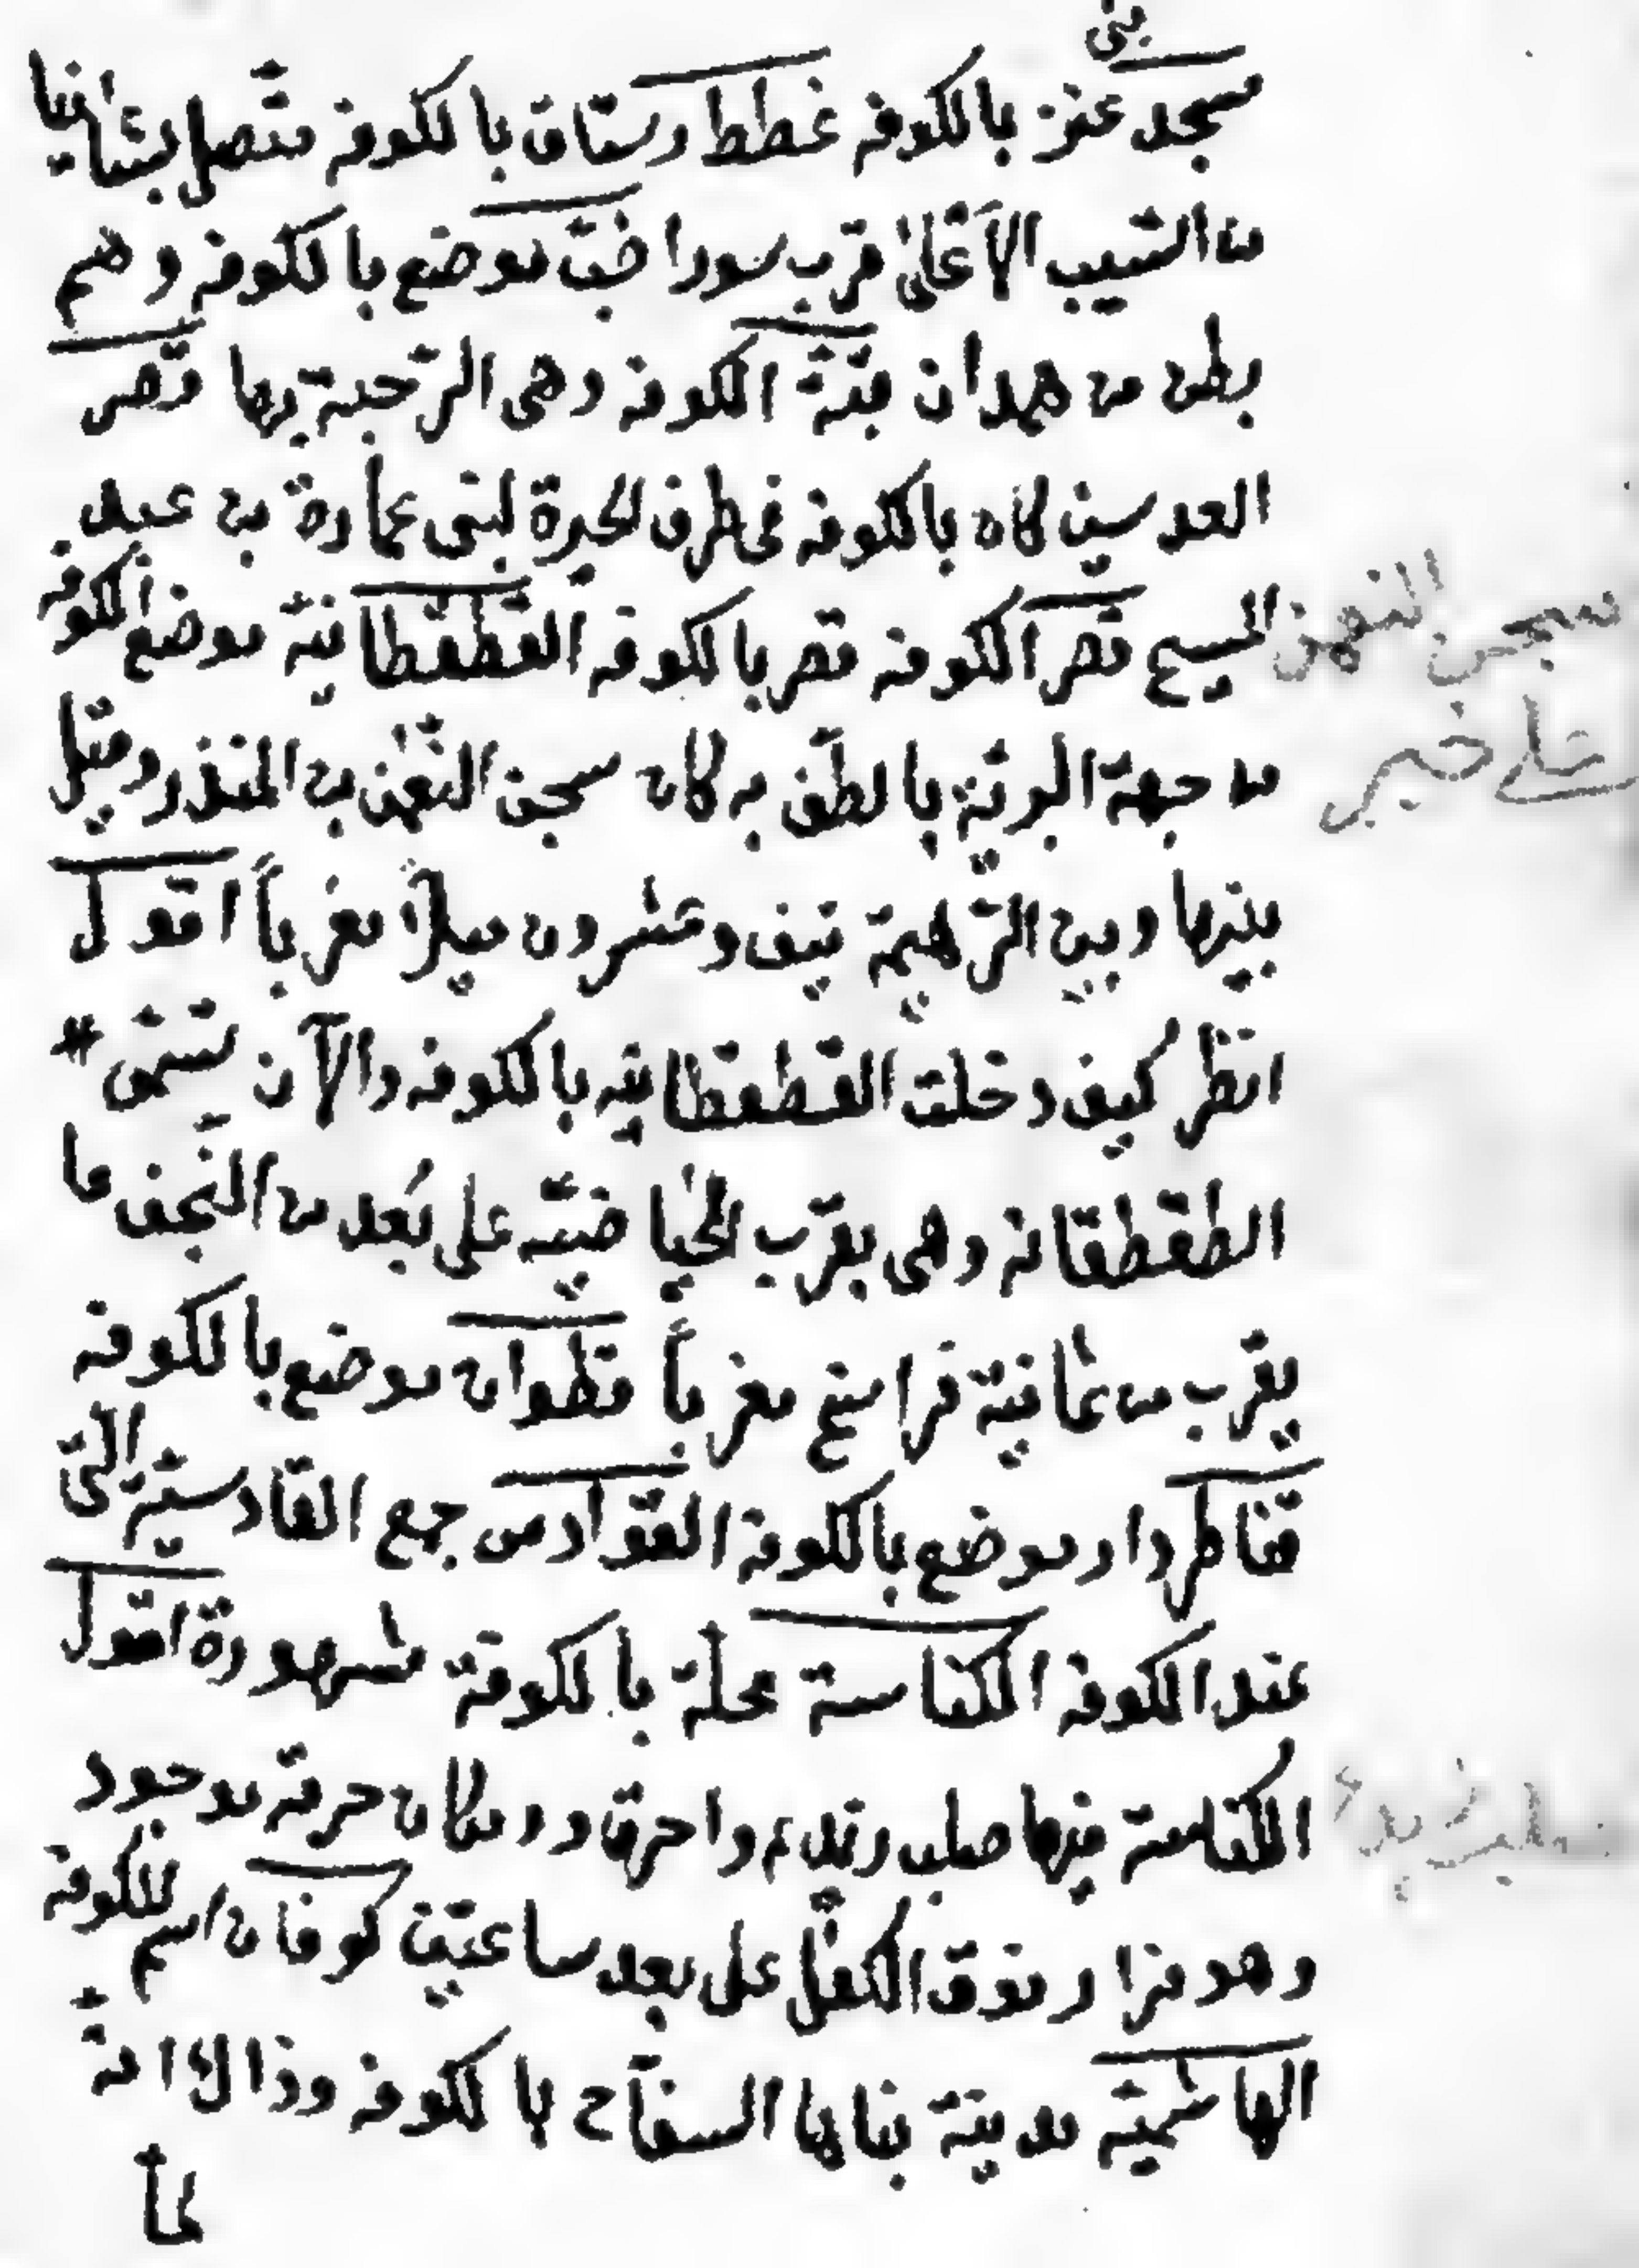 بنى
مسجد عنز بالكوفه غطط رستاق بالكوفه متصل بشانيا
من السيب الأعلى قرب سورا ضب موضع بالكوفه وهم
بطن من همدان قبة الكوفه وهى الرحبة بها قصر
العدسين كان بالكوفه فى طرف الحيرة لبنى عمارة بن عبد
المسيح قصر الكوفه قصر بالكوفه القطقطانية موضع بالكوفه
من جهة البرية بالطف به كان سجن النعمن بن المنذر وقيل
بينها وبين الرهيمة نيف وعشرون ميلاً مغرباً اقول
انظر كيف دخلت القطقطانيه بالكوفه والآن تسمى #
الطقطقانه وهى بقرب الحياضيه على بُعد من النجف ما
يقرب من ثمانية فراسخ مغرباً قطوان موضع بالكوفه
قناطر دار موضع بالكوفة القوادس جمع القادسية التى
عند الكوفه الكناسة محلة بالكوفة مشهورة اقول
الكناسة فيها صلب زيد م واحرق ومكان حرقه موجود
وهو مزار فوق الكفل على بعد ساعتين كوفان اسم للكوفة
الهاشمية مدينة بناها السفاح بالكوفه وذالك انه
لما
سجن النعمن
خبر